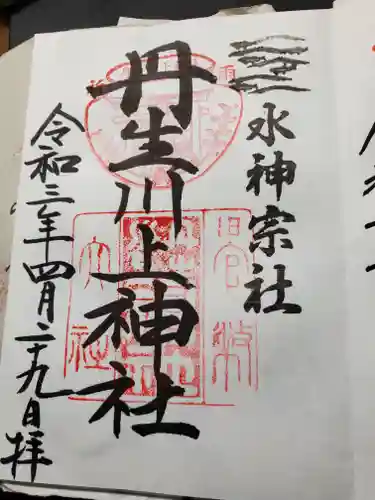 水神宗社
丹生川上神社
官幣
大社
令和三年四月二十九日拝